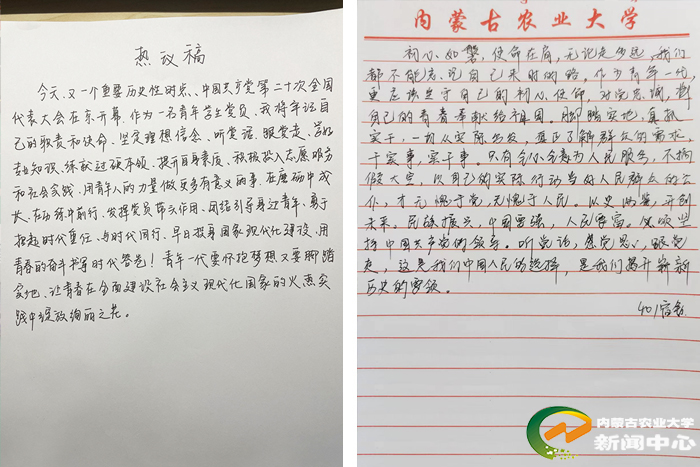 热议稿
今天、又一个重要历史性时点、中国共产党第二十次全国
代表大会在京开幕。作为一名青年学生党员、我将牢记自
己的职责和使命、坚定理想信念、听党话、跟党走、学好
专业知识、练就过硬本领、提升自身素质、积极投入志愿服务
和社会实践、用青年人的力量做更多有意义的事、在磨砺中成
长、在历练中前行、发挥党员带头作用、团结引导身边青年、勇于
担起时代重任、与时代同行、早日投身国家现代化建设、用
青春的奋斗书写时代答卷！青年一代要怀抱梦想又要脚踏
实地、让青春在全面建设社会主义现代化国家的火热实
践中绽放绚丽之花。
内蒙古农业大学
初心如磐，使命在肩，无论走多远，我们
都不能忘记自己来时的路。作为青年一代
更应该坚守自己的初心、使命，对党忠诚，将
自己的青春奉献给祖国。脚踏实地，真抓
实干，一切从实际出发，真正了解群众的需求，
干实事，实干事。只有全心全意为人民服务，不搞
假大空，以自己的实际行动当好人民群众的公
仆，才无愧于党，无愧于人民。以史为鉴，开创
未来。民族振兴，中国富强，人民富裕。必须坚
持中国共产党的领导。听党话，感党恩，跟党
走，这是我们中国人民的选择，是我们揭开崭新
历史的要领。
401宿舍
内蒙古农业大学
新闻中心